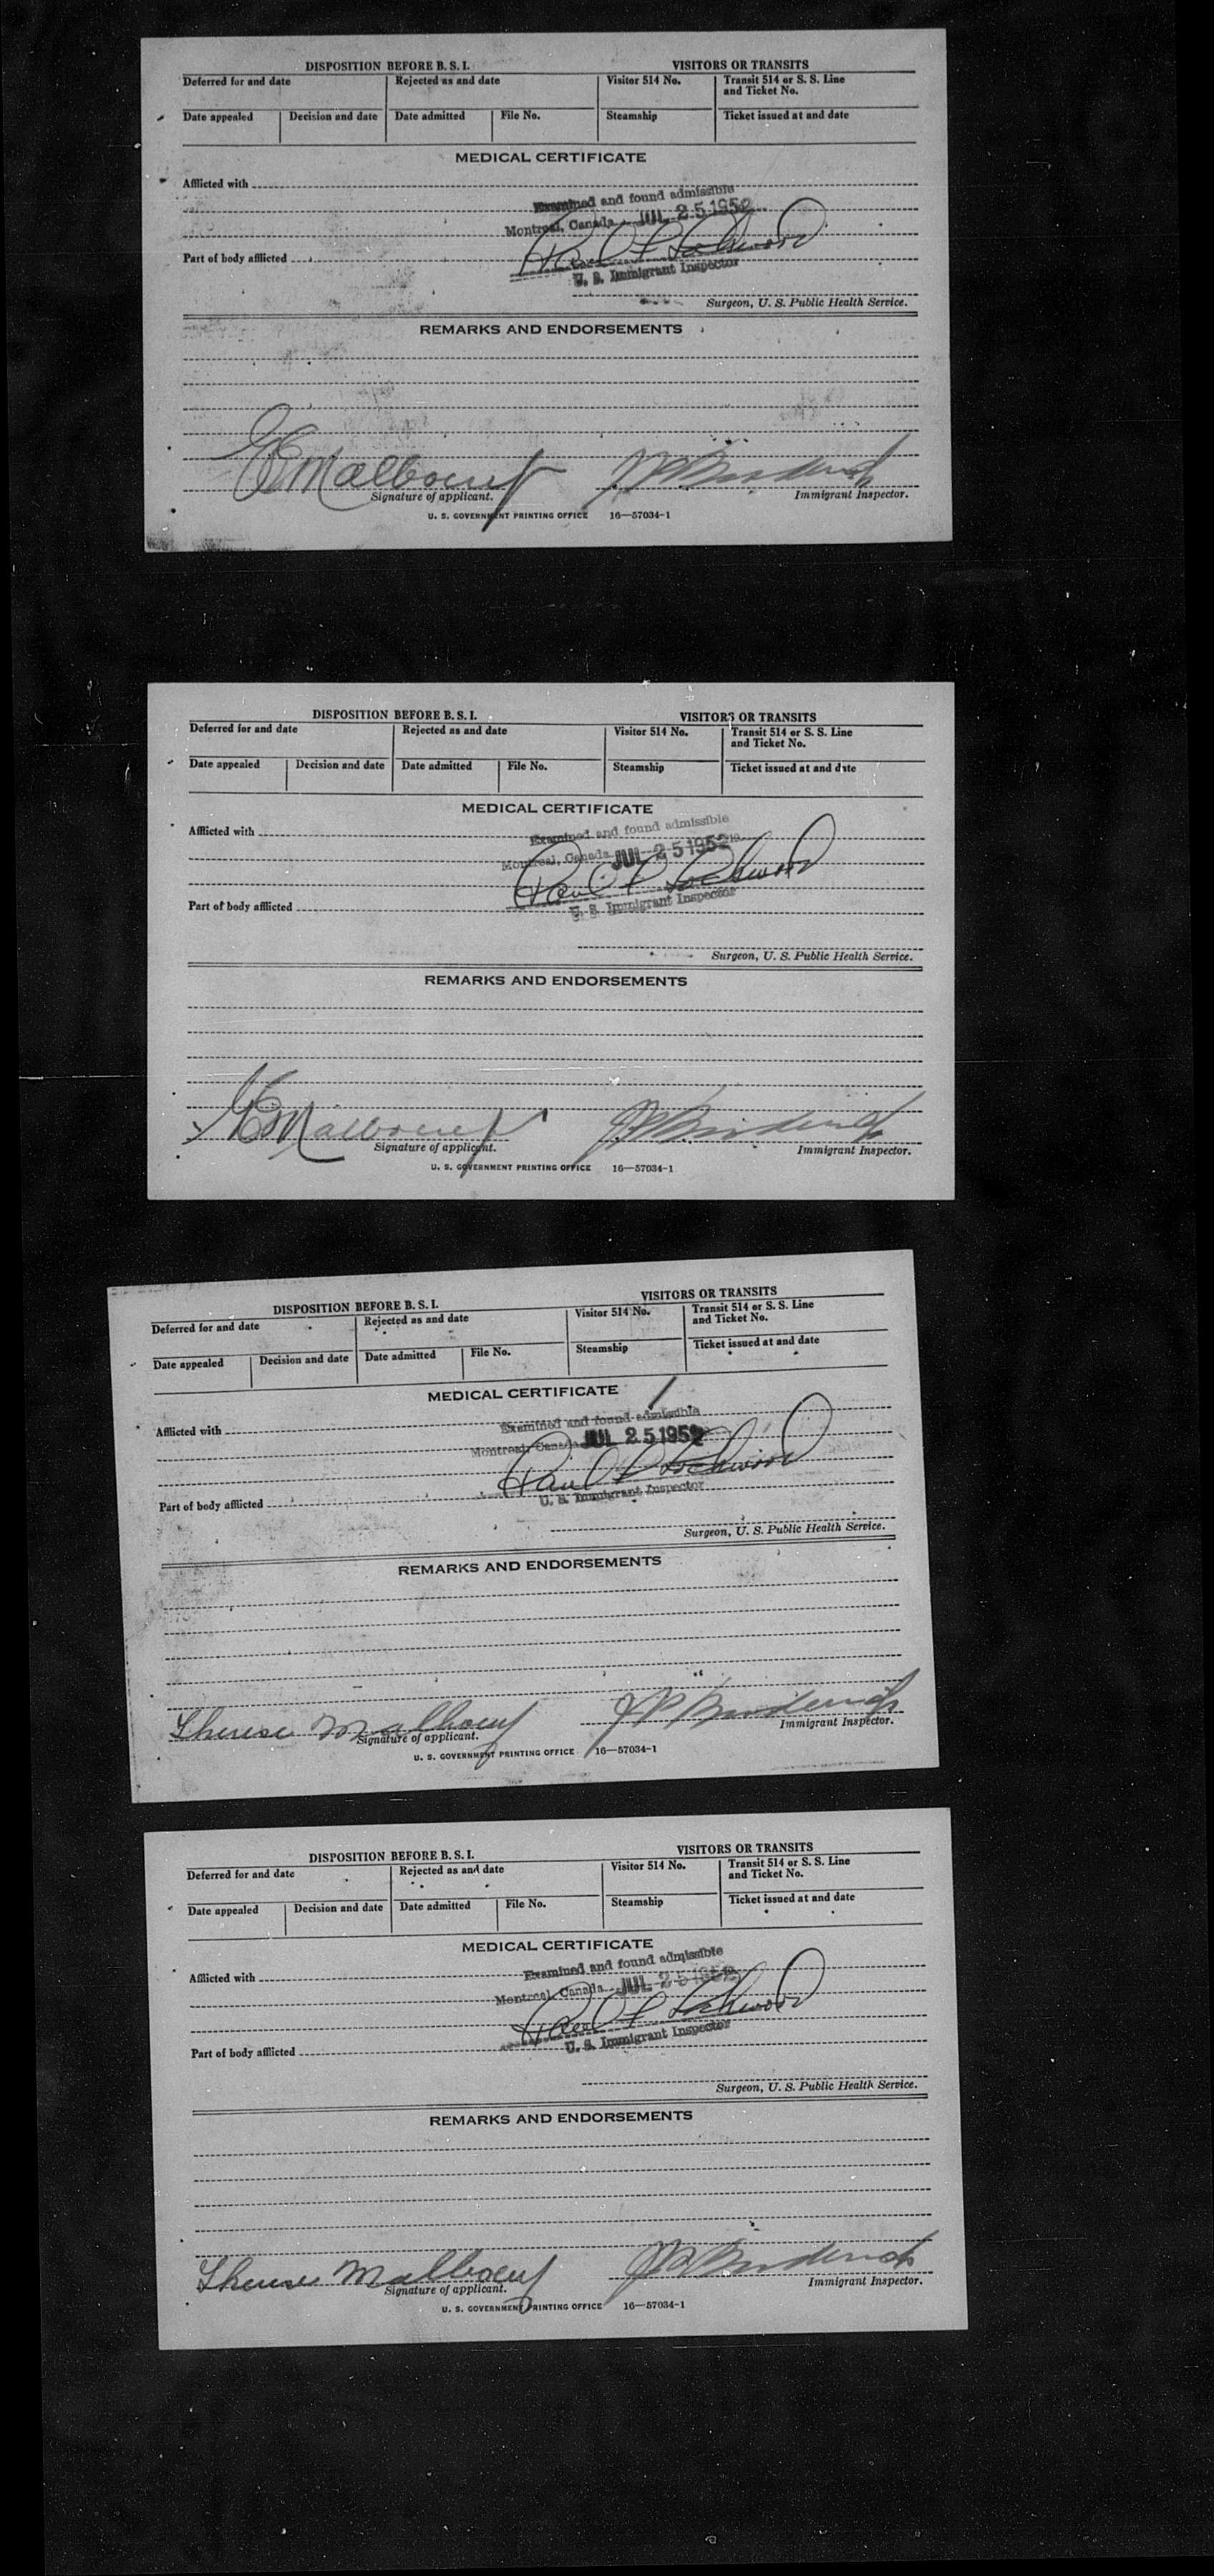 DISPOSITION BEFORE B. S. I. VISITORS OR TRANSITS
Deferred for and date Rejected as and date Visitor 514 No. Transit 514 or S. S. Line and Ticket No.
Date appealed Decision and date Date admitted File No. Steamship Ticket issued at and date
MEDICAL CERTIFICATE
Afflicted with
Examined and found admissible
Montreal, Canada JUL 25 1952
Paul P Lockwood
Part of body afflicted
U. S. Immigrant Inspector
Surgeon, U. S. Public Health Service.
REMARKS AND ENDORSEMENTS
Malboeuf
Signature of applicant. Immigrant Inspector.
U. S. GOVERNMENT PRINTING OFFICE 16—57034-1
DISPOSITION BEFORE B. S. I. VISITORS OR TRANSITS
Deferred for and date Rejected as and date Visitor 514 No. Transit 514 or S. S. Line and Ticket No.
Date appealed Decision and date Date admitted File No. Steamship Ticket issued at and date
MEDICAL CERTIFICATE
Afflicted with
Examined and found admissible
Montreal, Canada JUL 25 1952
Paul P Lockwood
Part of body afflicted
U. S. Immigrant Inspector
Surgeon, U. S. Public Health Service.
REMARKS AND ENDORSEMENTS
Malboeuf
Signature of applicant. Immigrant Inspector.
U. S. GOVERNMENT PRINTING OFFICE 16—57034-1
DISPOSITION BEFORE B. S. I. VISITORS OR TRANSITS
Deferred for and date Rejected as and date Visitor 514 No. Transit 514 or S. S. Line and Ticket No.
Date appealed Decision and date Date admitted File No. Steamship Ticket issued at and date
MEDICAL CERTIFICATE
Afflicted with
Examined and found admissible
Montreal, Canada JUL 25 1952
Paul P Lockwood
Part of body afflicted
U. S. Immigrant Inspector
Surgeon, U. S. Public Health Service.
REMARKS AND ENDORSEMENTS
Therese Malboeuf
Signature of applicant. Immigrant Inspector.
U. S. GOVERNMENT PRINTING OFFICE 16—57034-1
DISPOSITION BEFORE B. S. I. VISITORS OR TRANSITS
Deferred for and date Rejected as and date Visitor 514 No. Transit 514 or S. S. Line and Ticket No.
Date appealed Decision and date Date admitted File No. Steamship Ticket issued at and date
MEDICAL CERTIFICATE
Afflicted with
Examined and found admissible
Montreal, Canada JUL 25 1952
Paul P Lockwood
Part of body afflicted
U. S. Immigrant Inspector
Surgeon, U. S. Public Health Service.
REMARKS AND ENDORSEMENTS
Therese Malboeuf
Signature of applicant. Immigrant Inspector.
U. S. GOVERNMENT PRINTING OFFICE 16—57034-1